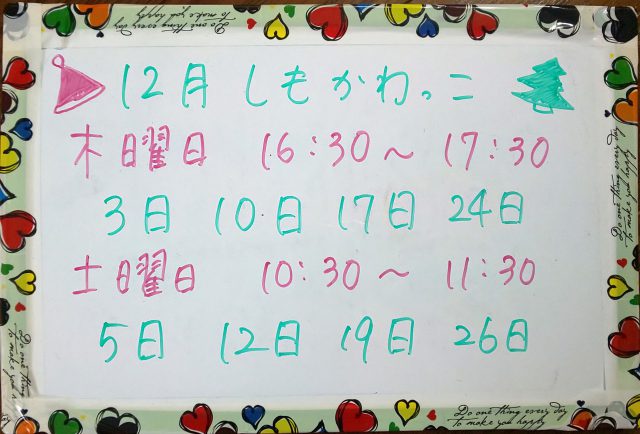 12月 しもかわっこ
木曜日 16:30～17:30
3日 10日 17日 24日
土曜日 10:30～11:30
5日 12日 19日 26日
Do one thing every day
To make you happy
Do one thing every day
To make you happy
Do one thing every day
To make you happy
Do one thing every day
To make you happy